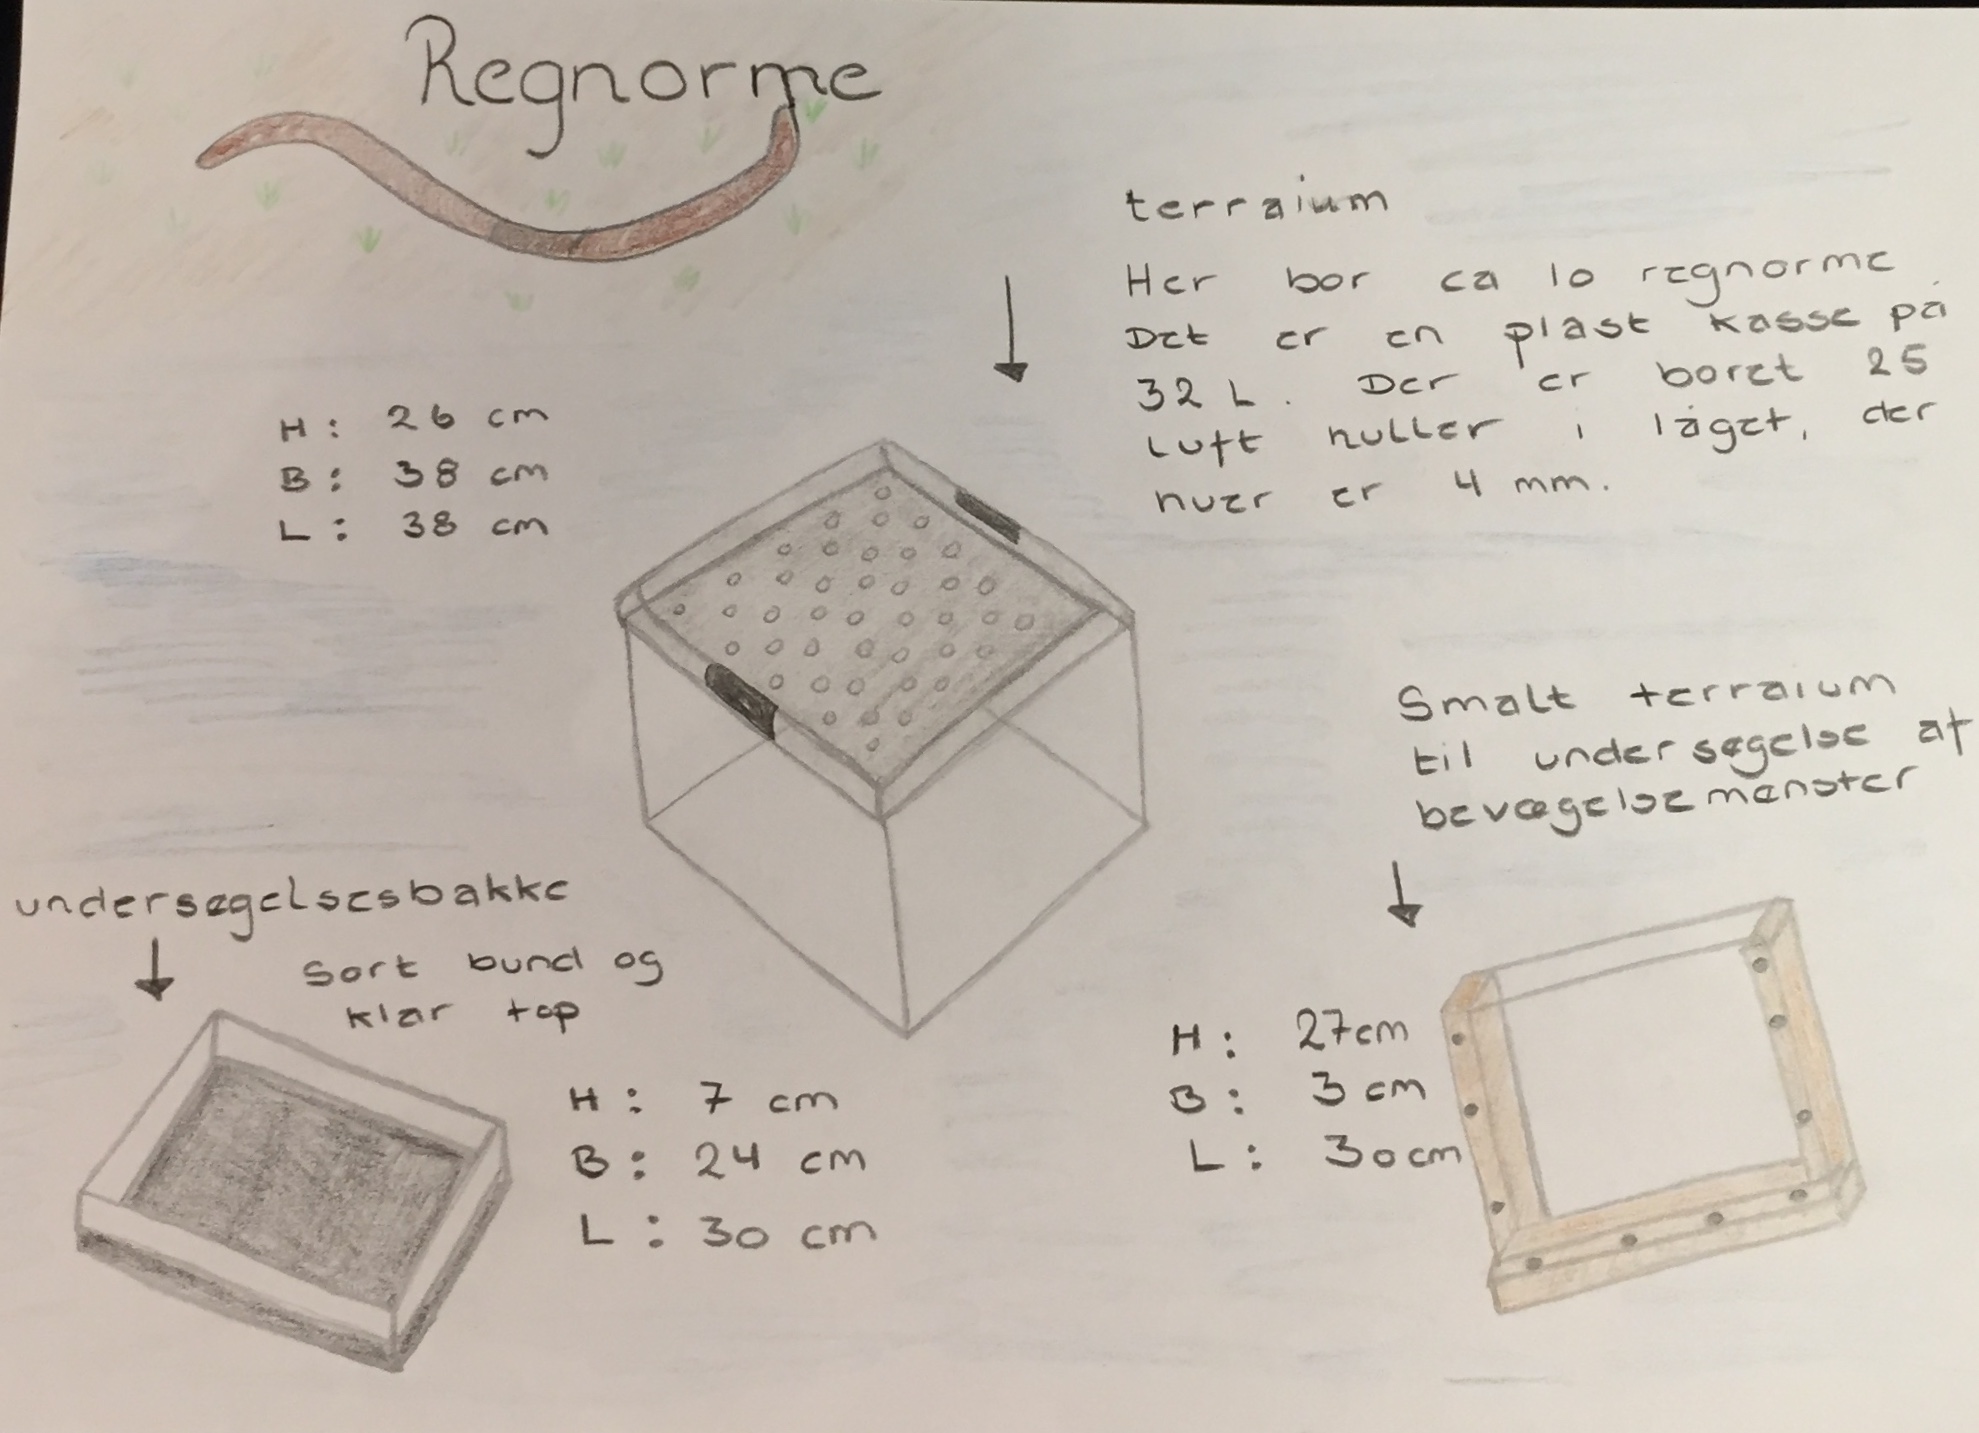 Regnorme
terraium
Her bor ca 10 regnorme
Det er en plast kasse på
32 L. Der er boret 25
luft huller i låget, der
hver er 4 mm.
H: 26 cm
B: 38 cm
L: 38 cm
Smalt terraium
til undersøgelse af
bevægelsemønster
H: 27cm
B: 3 cm
L: 30cm
undersøgelsesbakke
Sort bund og
klar top
H: 7 cm
B: 24 cm
L: 30 cm